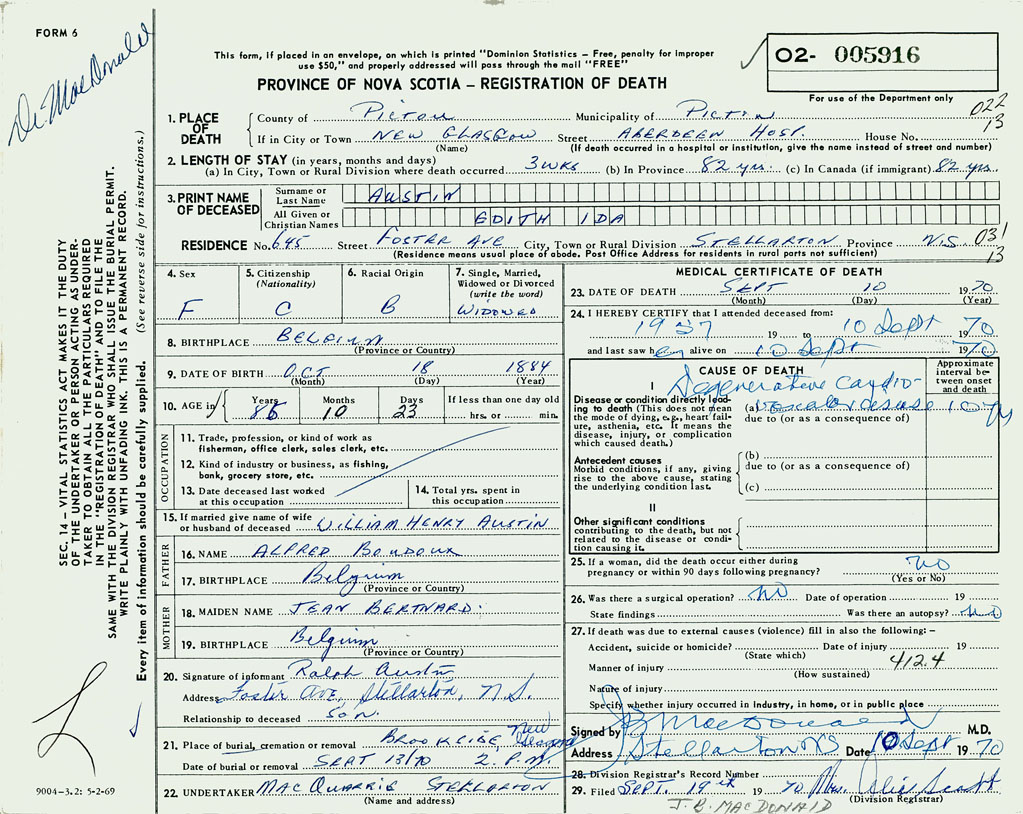 FORM 6
Dr. MacDonald
This form, if placed in an envelope, on which is printed "Dominion Statistics – Free, penalty for improper
use $50," and properly addressed will pass through the mail "FREE"
02- 005916
PROVINCE OF NOVA SCOTIA – REGISTRATION OF DEATH
For use of the Department only
022
13
1. PLACE OF DEATH
County of Pictou Municipality of Pictou
If in City or Town NEW GLASGOW Street ABERDEEN HOSP. House No.
(Name) (If death occurred in a hospital or institution, give the name instead of street and number)
2. LENGTH OF STAY (in years, months and days)
(a) In City, Town or Rural Division where death occurred 3 wks (b) In Province 82 yrs. (c) In Canada (if immigrant) 82 yrs.
3. PRINT NAME OF DECEASED
Surname or Last Name AUSTIN
All Given or Christian Names EDITH IDA
RESIDENCE No. 645 Street FOSTER AVE City, Town or Rural Division STELLARTON Province N.S.
031
13
(Residence means usual place of abode. Post Office Address for residents in rural parts not sufficient)
4. Sex F
5. Citizenship (Nationality) C
6. Racial Origin B
7. Single, Married, Widowed or Divorced (write the word) WIDOWED
8. BIRTHPLACE BELGIUM
(Province or Country)
9. DATE OF BIRTH OCT 18 1884
(Month) (Day) (Year)
10. AGE in Years 85 Months 10 Days 23 If less than one day old hrs. or min.
OCCUPATION
11. Trade, profession, or kind of work as fisherman, office clerk, sales clerk, etc.
12. Kind of industry or business, as fishing, bank, grocery store, etc.
13. Date deceased last worked at this occupation
14. Total yrs. spent in this occupation
15. If married give name of wife or husband of deceased WILLIAM HENRY AUSTIN
FATHER
16. NAME ALFRED BOUDOUX
17. BIRTHPLACE Belgium
(Province or Country)
MOTHER
18. MAIDEN NAME JEAN BERTNARD
19. BIRTHPLACE Belgium
(Province or Country)
20. Signature of informant Ralph Austin
Address Foster Ave, Stellarton, N.S.
Relationship to deceased SON
21. Place of burial, cremation or removal New
Date of burial or removal SEPT 13/70 2. P.M.
22. UNDERTAKER MACQUARRIE STELLARTON
(Name and address)
MEDICAL CERTIFICATE OF DEATH
23. DATE OF DEATH SEPT 10 1970
(Month) (Day) (Year)
24. I HEREBY CERTIFY that I attended deceased from:
1957 19 to 10 Sept 1970
and last saw her alive on 10 Sept 1970
CAUSE OF DEATH
Approximate interval between onset and death
I
Disease or condition directly leading to death (This does not mean the mode of dying, e.g., heart failure, asthenia, etc. It means the disease, injury, or complication which caused death.)
Degenerative Cardio-
(a) vascular disease 10 yrs
due to (or as a consequence of)
Antecedent causes
Morbid conditions, if any, giving rise to the above cause, stating the underlying condition last.
(b)
due to (or as a consequence of)
(c)
II
Other significant conditions
contributing to the death, but not related to the disease or condition causing it.
25. If a woman, did the death occur either during
pregnancy or within 90 days following pregnancy? no
(Yes or No)
26. Was there a surgical operation? no Date of operation 19
State findings Was there an autopsy? no
27. If death was due to external causes (violence) fill in also the following: –
Accident, suicide or homicide? Date of injury 19
(State which)
Manner of injury 412.4
(How sustained)
Nature of injury
Specify whether injury occurred in Industry, in home, or in public place
Signed by J B MacDonald M.D.
Address Stellarton NS Date 10 Sept 1970
28. Division Registrar's Record Number
29. Filed SEPT. 19th 1970 Mrs. Scott
(Division Registrar)
J. B. MACDONALD
SEC. 14 – VITAL STATISTICS ACT MAKES IT THE DUTY
OF THE UNDERTAKER OR PERSON ACTING AS UNDER-
TAKER TO OBTAIN ALL THE PARTICULARS REQUIRED
IN THE "REGISTRATION OF DEATH" AND TO FILE THE
SAME WITH THE DIVISION REGISTRAR WHO SHALL ISSUE THE BURIAL PERMIT.
WRITE PLAINLY WITH UNFADING INK. THIS IS A PERMANENT RECORD.
Every item of information should be carefully supplied. (See reverse side for instructions.)
9004-3.2: 5-2-69